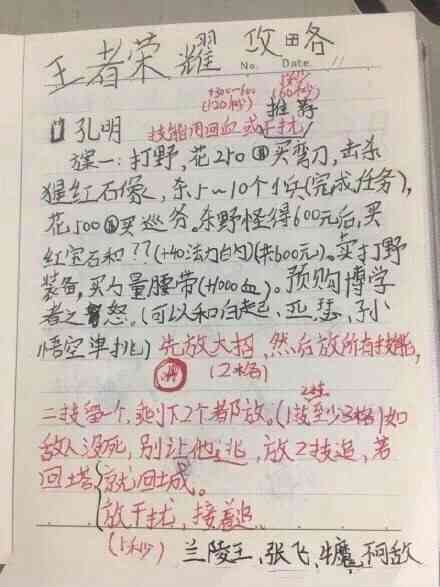 王者荣耀 攻略
No.
Date.
+300~600
(120秒)
(60秒)
推荐
孔明 技能用回血或干扰
方案一:打野,花250买弯刀,击杀
猩红石像,杀5~10个小兵(完成任务),
花500买巡务。杀野怪得600元后,买
红宝石和??(+40法力/白内)(共600元)。卖打野
装备,买力量腰带(+1000血)。预购博学
者之怒。(可以和白起、亚瑟、孙
悟空单挑)先放大招,然后放所有技能,
(2格)
二技留一个,剩下2个都放。(1技至少3格)如
敌人没死,别让他逃,放2技追,若
回塔就回城。
放干扰,接着追
(1秒)
兰陵王、张飞、牛魔、不可敌